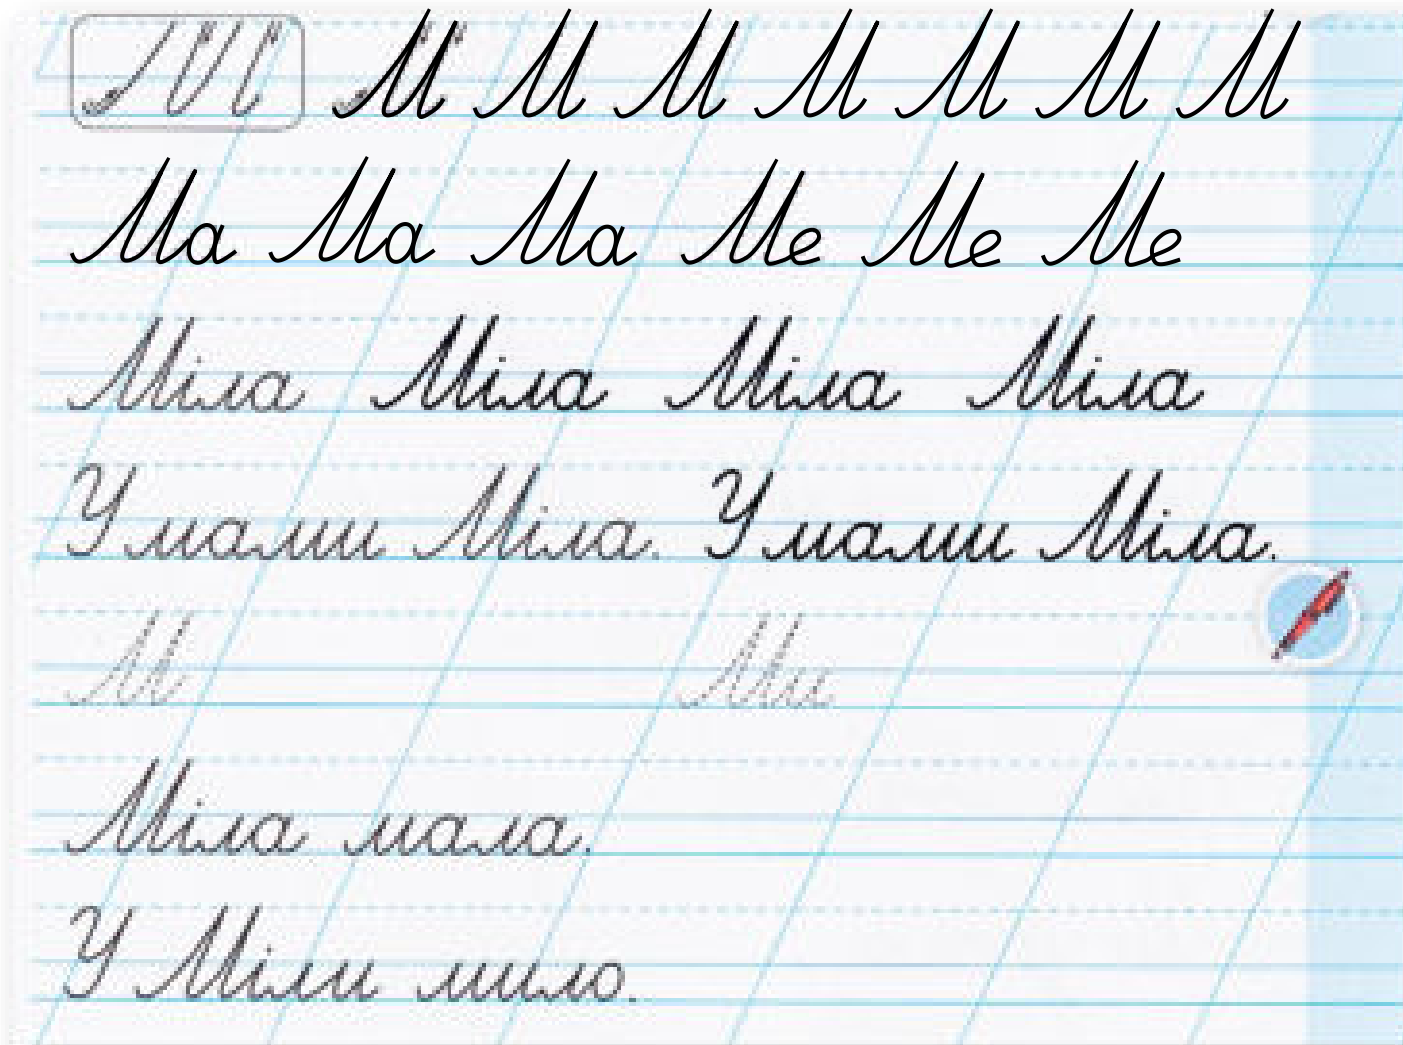 М М М М М М М
Ма Ма Ма Ме Ме Ме
Міла Міла Міла Міла
У мами Міла. У мами Міла.
М Ми
Міла мала.
У Міли мило.